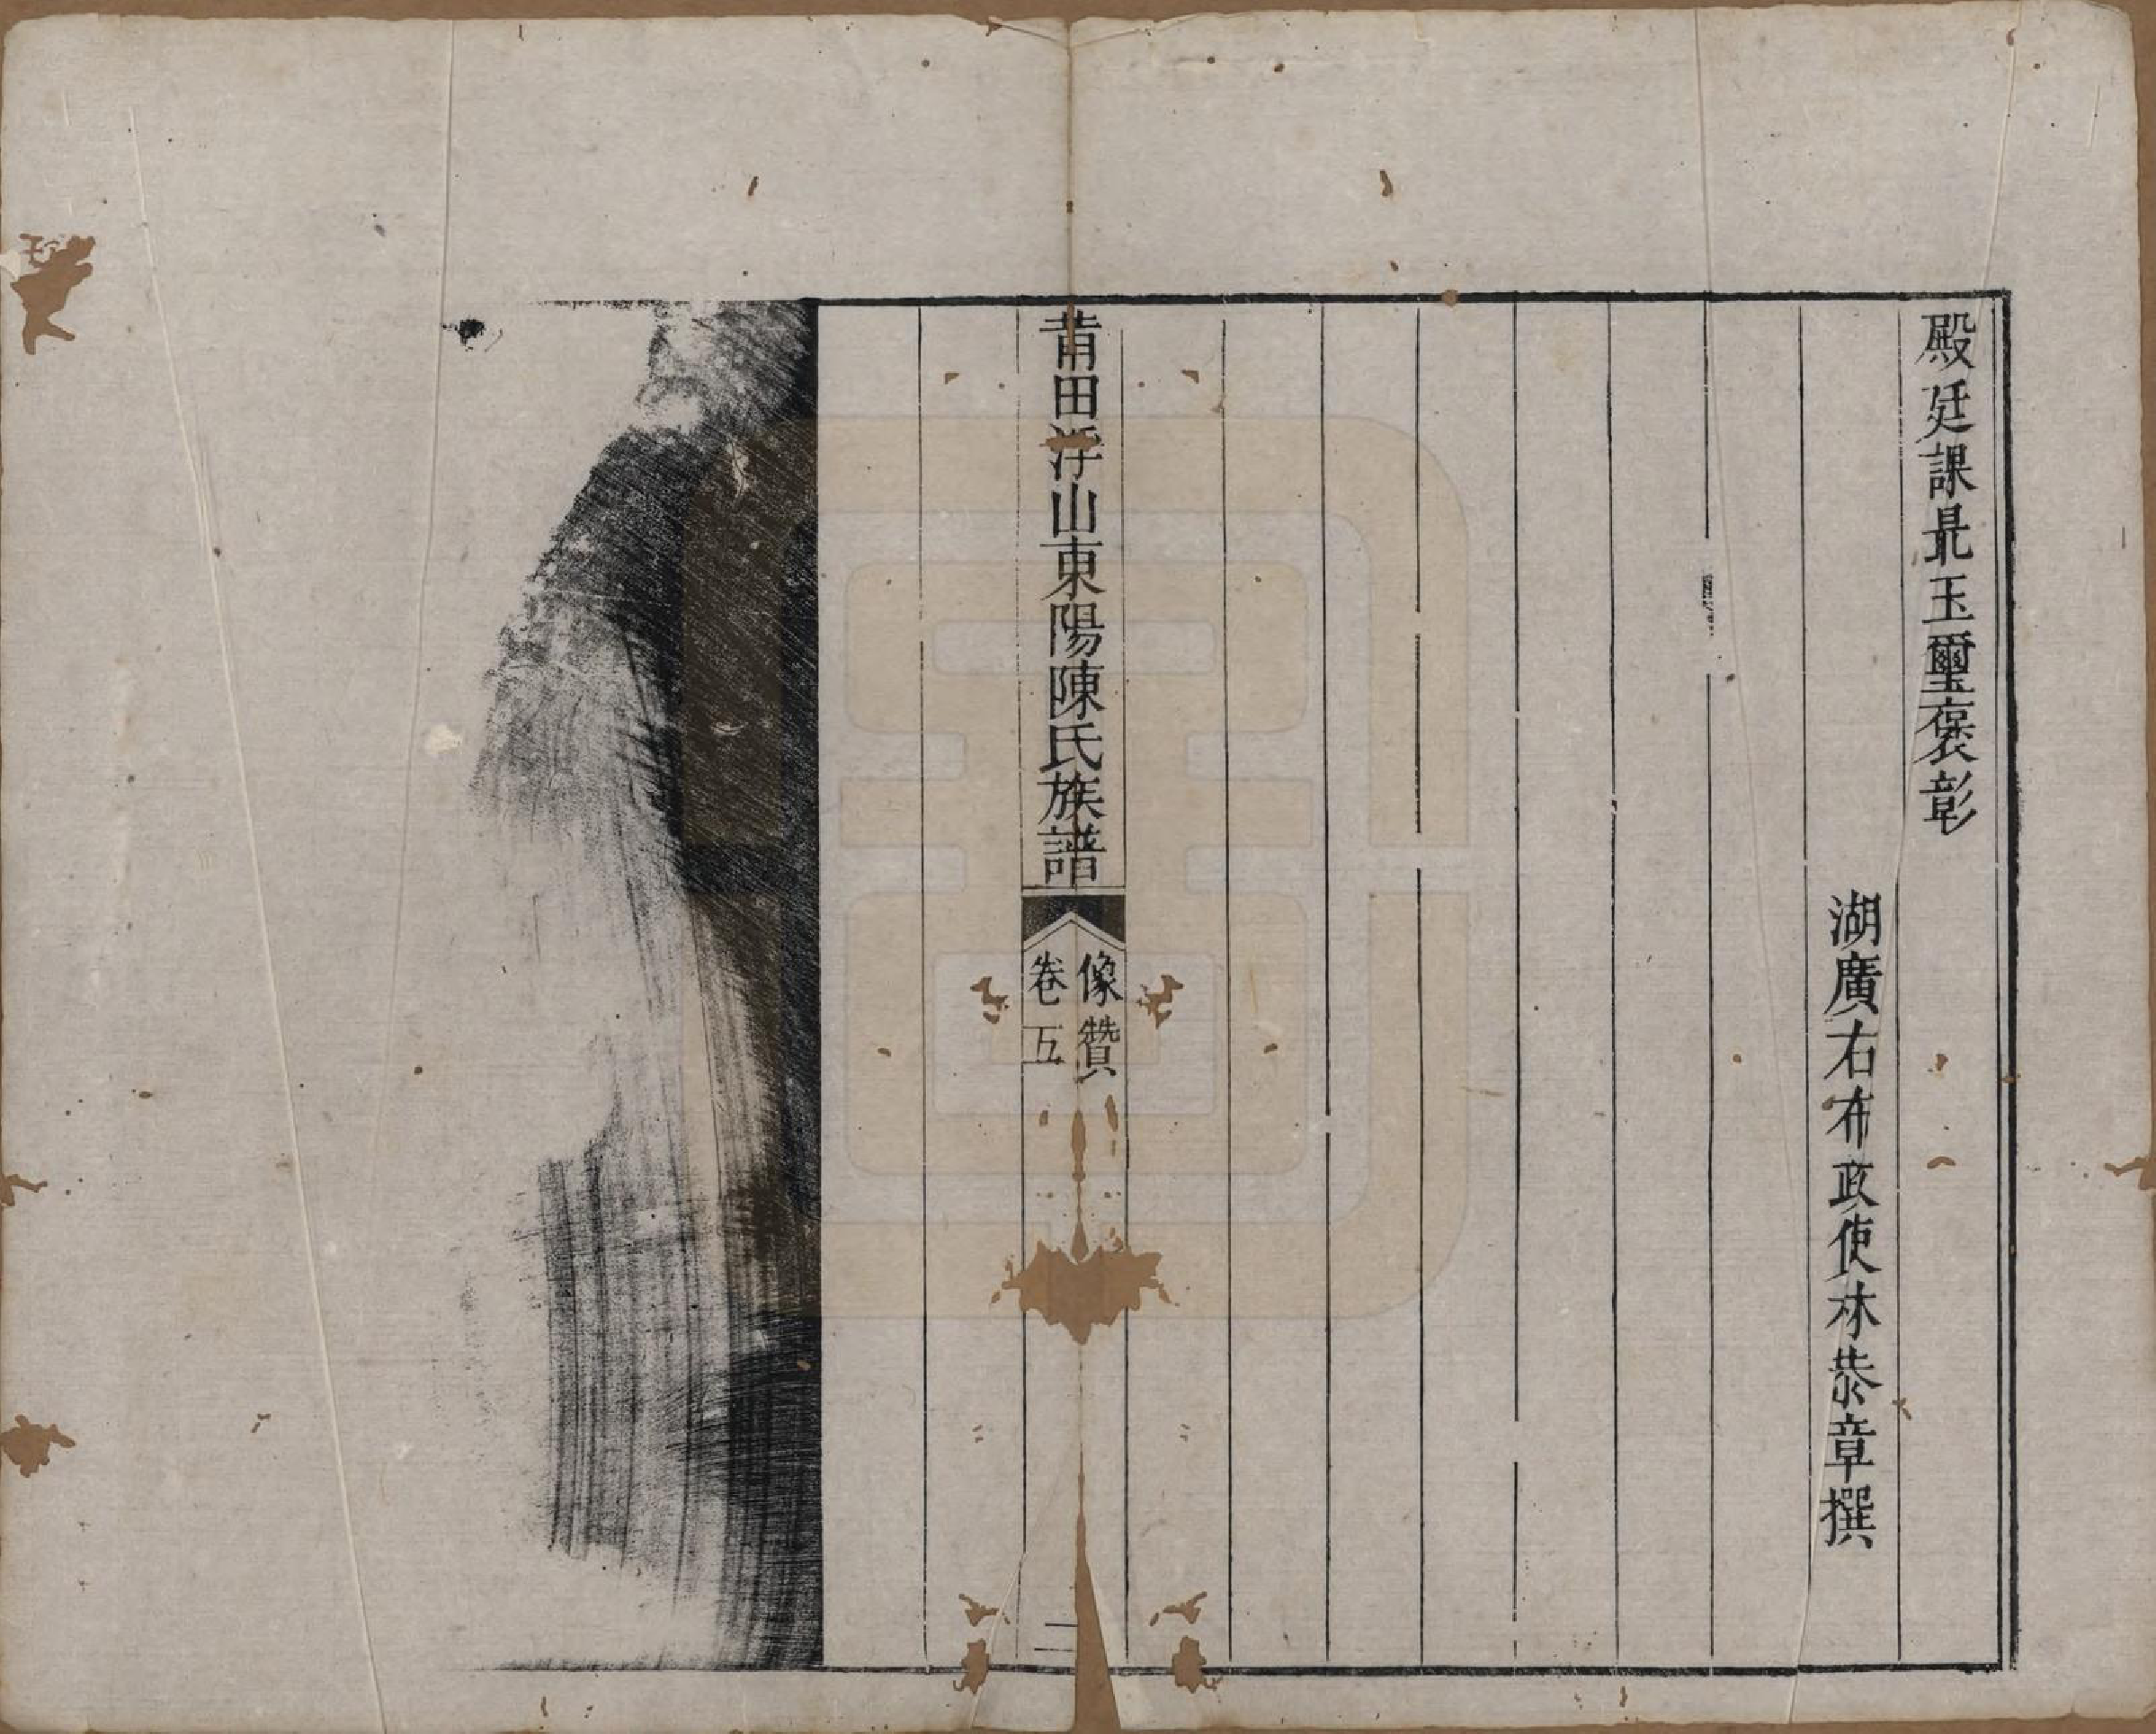 殿廷課最玉璽褒彰
湖廣右布政使林恭章撰
莆田浮山東陽陳氏族譜
像贊
卷五
二